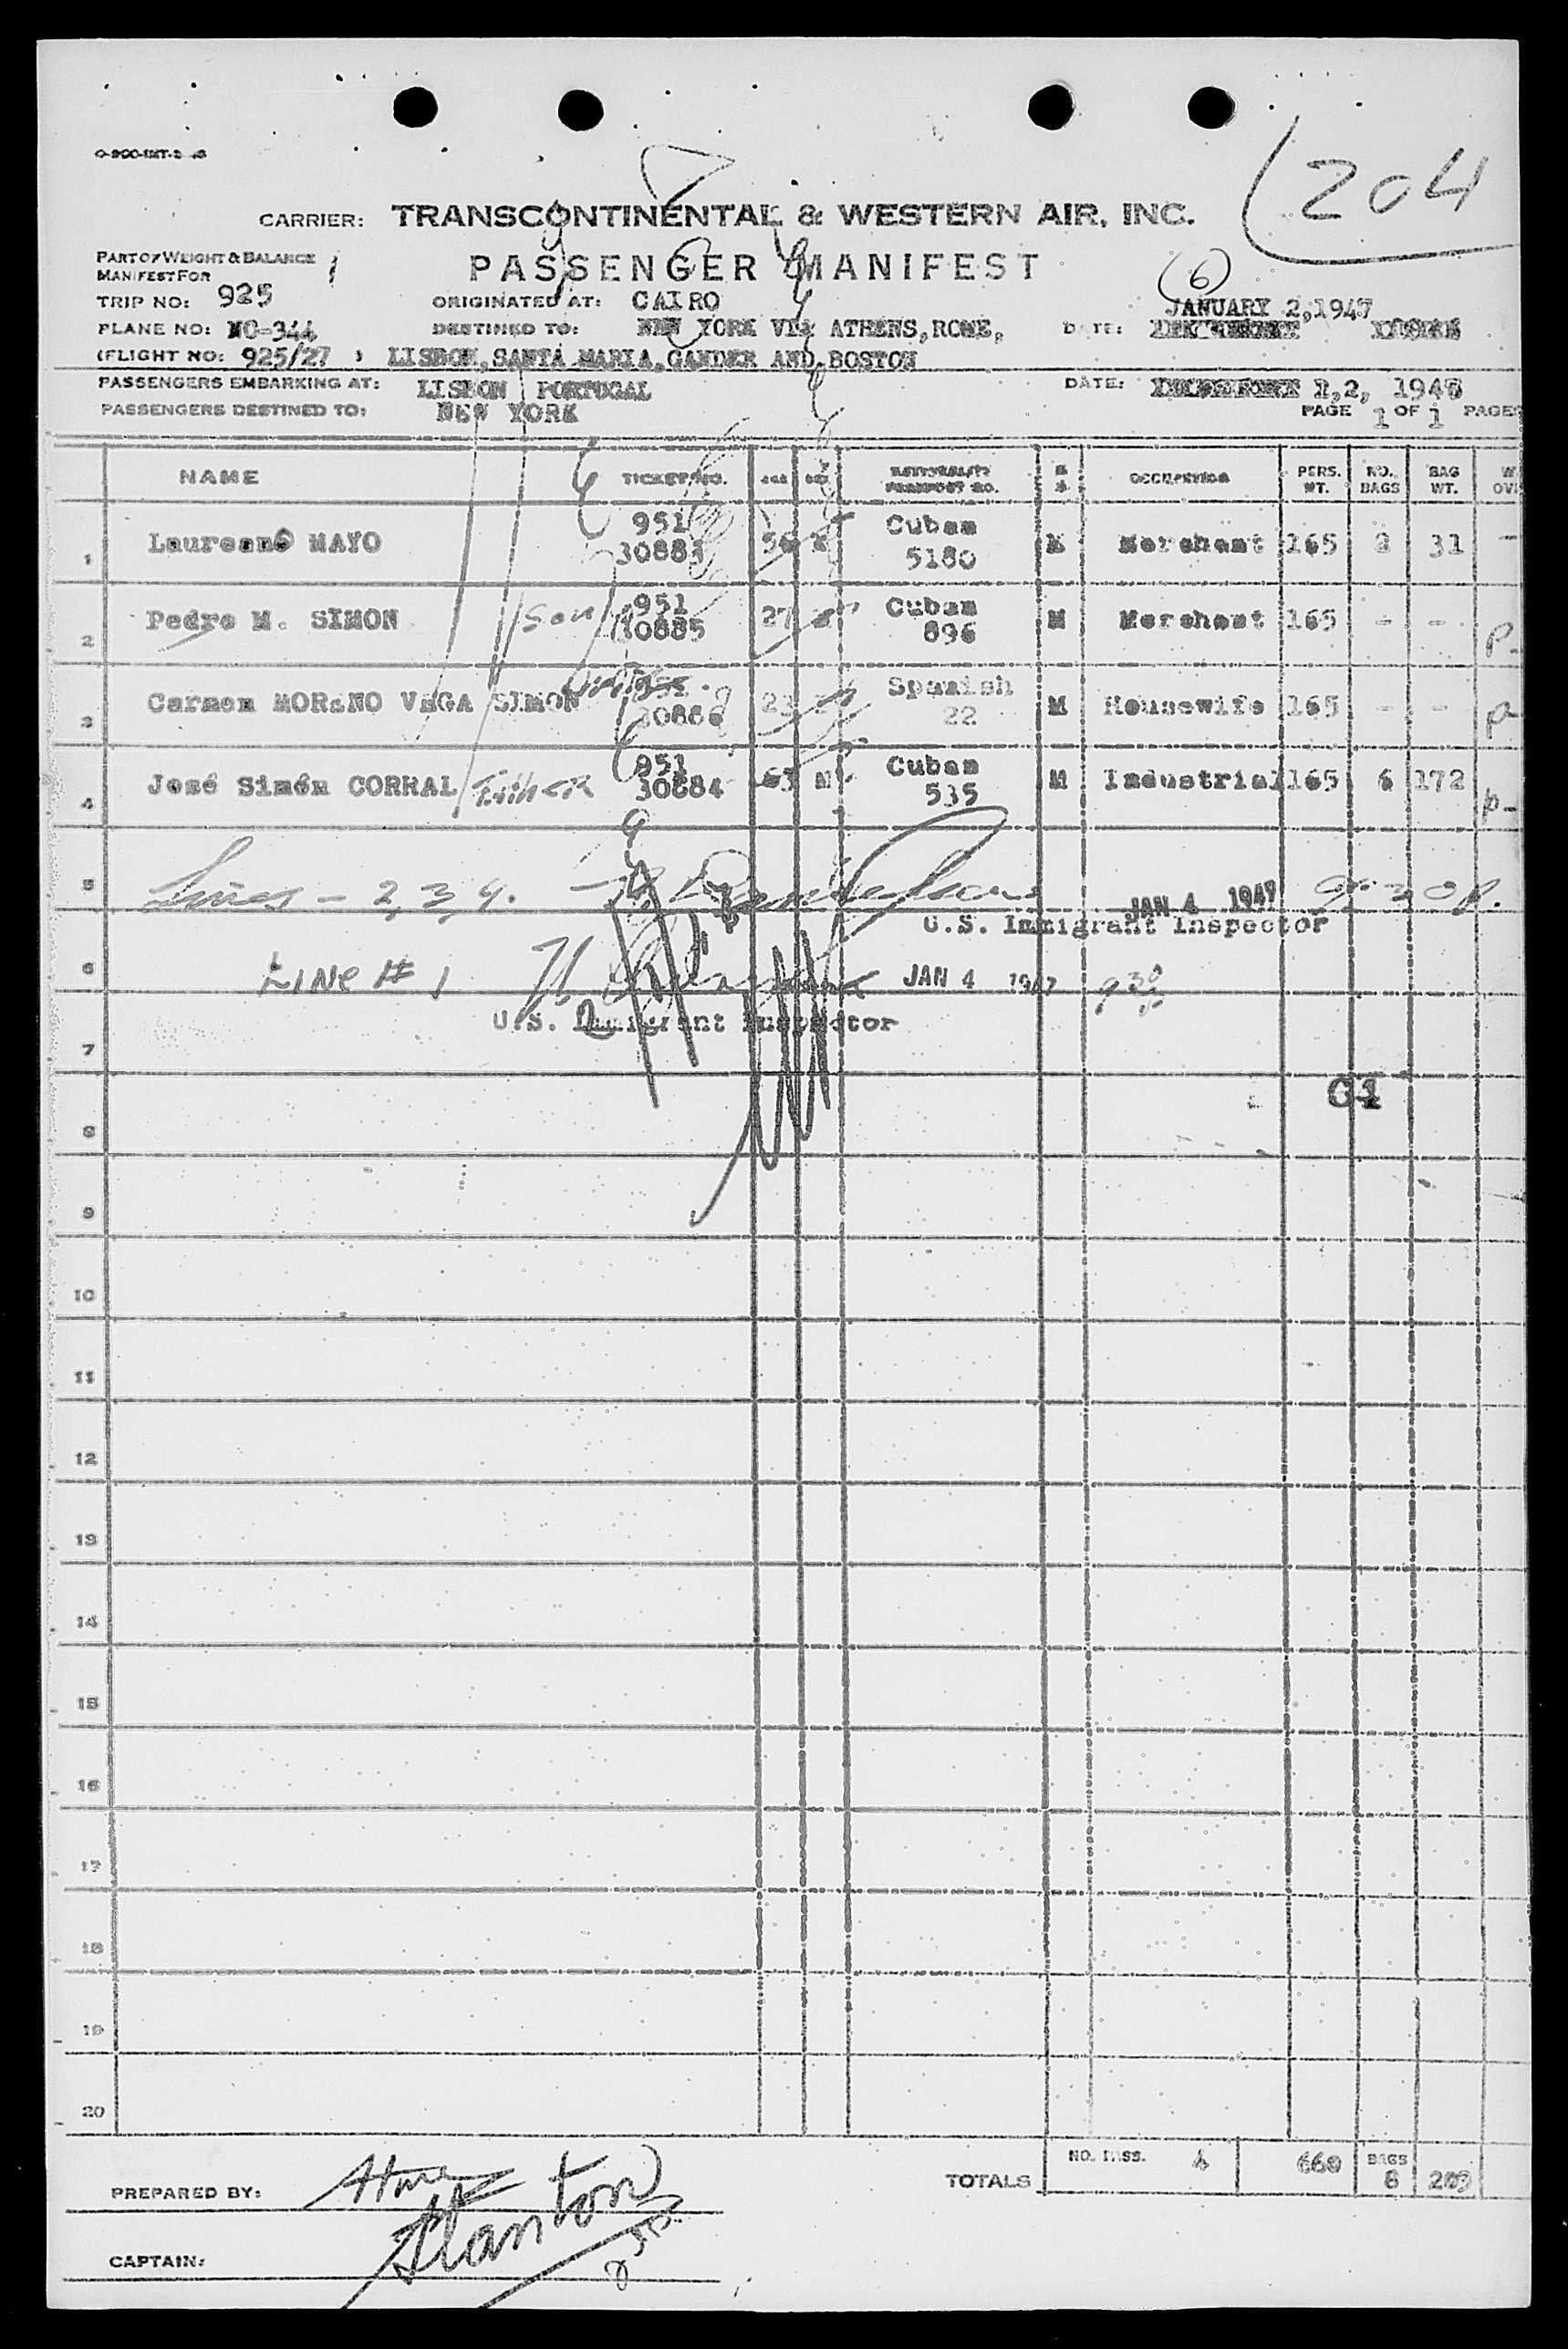 204
CARRIER: TRANSCONTINENTAL & WESTERN AIR, INC.
PART OF WEIGHT & BALANCE
MANIFEST FOR
PASSENGER MANIFEST
6
TRIP NO: 925
ORIGINATED AT: CAIRO
JANUARY 2,1947
PLANE NO: NC-344
DESTINED TO: NEW YORK VIA ATHENS,ROME,
DATE:
(FLIGHT NO: 925/27 )
LISBON,SANTA MARIA,GANDER AND BOSTON
PASSENGERS EMBARKING AT: LISBON PORTUGAL
DATE: 1,2, 194
PASSENGERS DESTINED TO: NEW YORK
PAGE 1 OF 1 PAGES
NAME TICKET NO. AGE SEX NATIONALITY PASSPORT NO. OCCUPATION PERS. WT. NO. BAGS BAG WT.
1 Laureano MAYO 951 30883 Cuban 5180 M Merchant 165 2 31 -
2 Pedro M. SIMON Son 951 30885 27 Cuban 896 M Merchant 165 - -
3 Carmen MORENO VEGA SIMON 30886 23 Spanish 22 M Housewife 165 - -
4 José Simón CORRAL Father 951 30884 63 M Cuban 535 M Industrial 165 6 172
5 Lines - 2, 3, 4.
JAN 4 1947
U.S. Immigrant Inspector
6 LINE # 1
JAN 4 1947 9 30
U.S. Immigrant Inspector
7
8
9
10
11
12
13
14
15
16
17
18
19
20
TOTALS NO. PASS. 4 660 BAGS 8 203
PREPARED BY:
CAPTAIN: Stanton